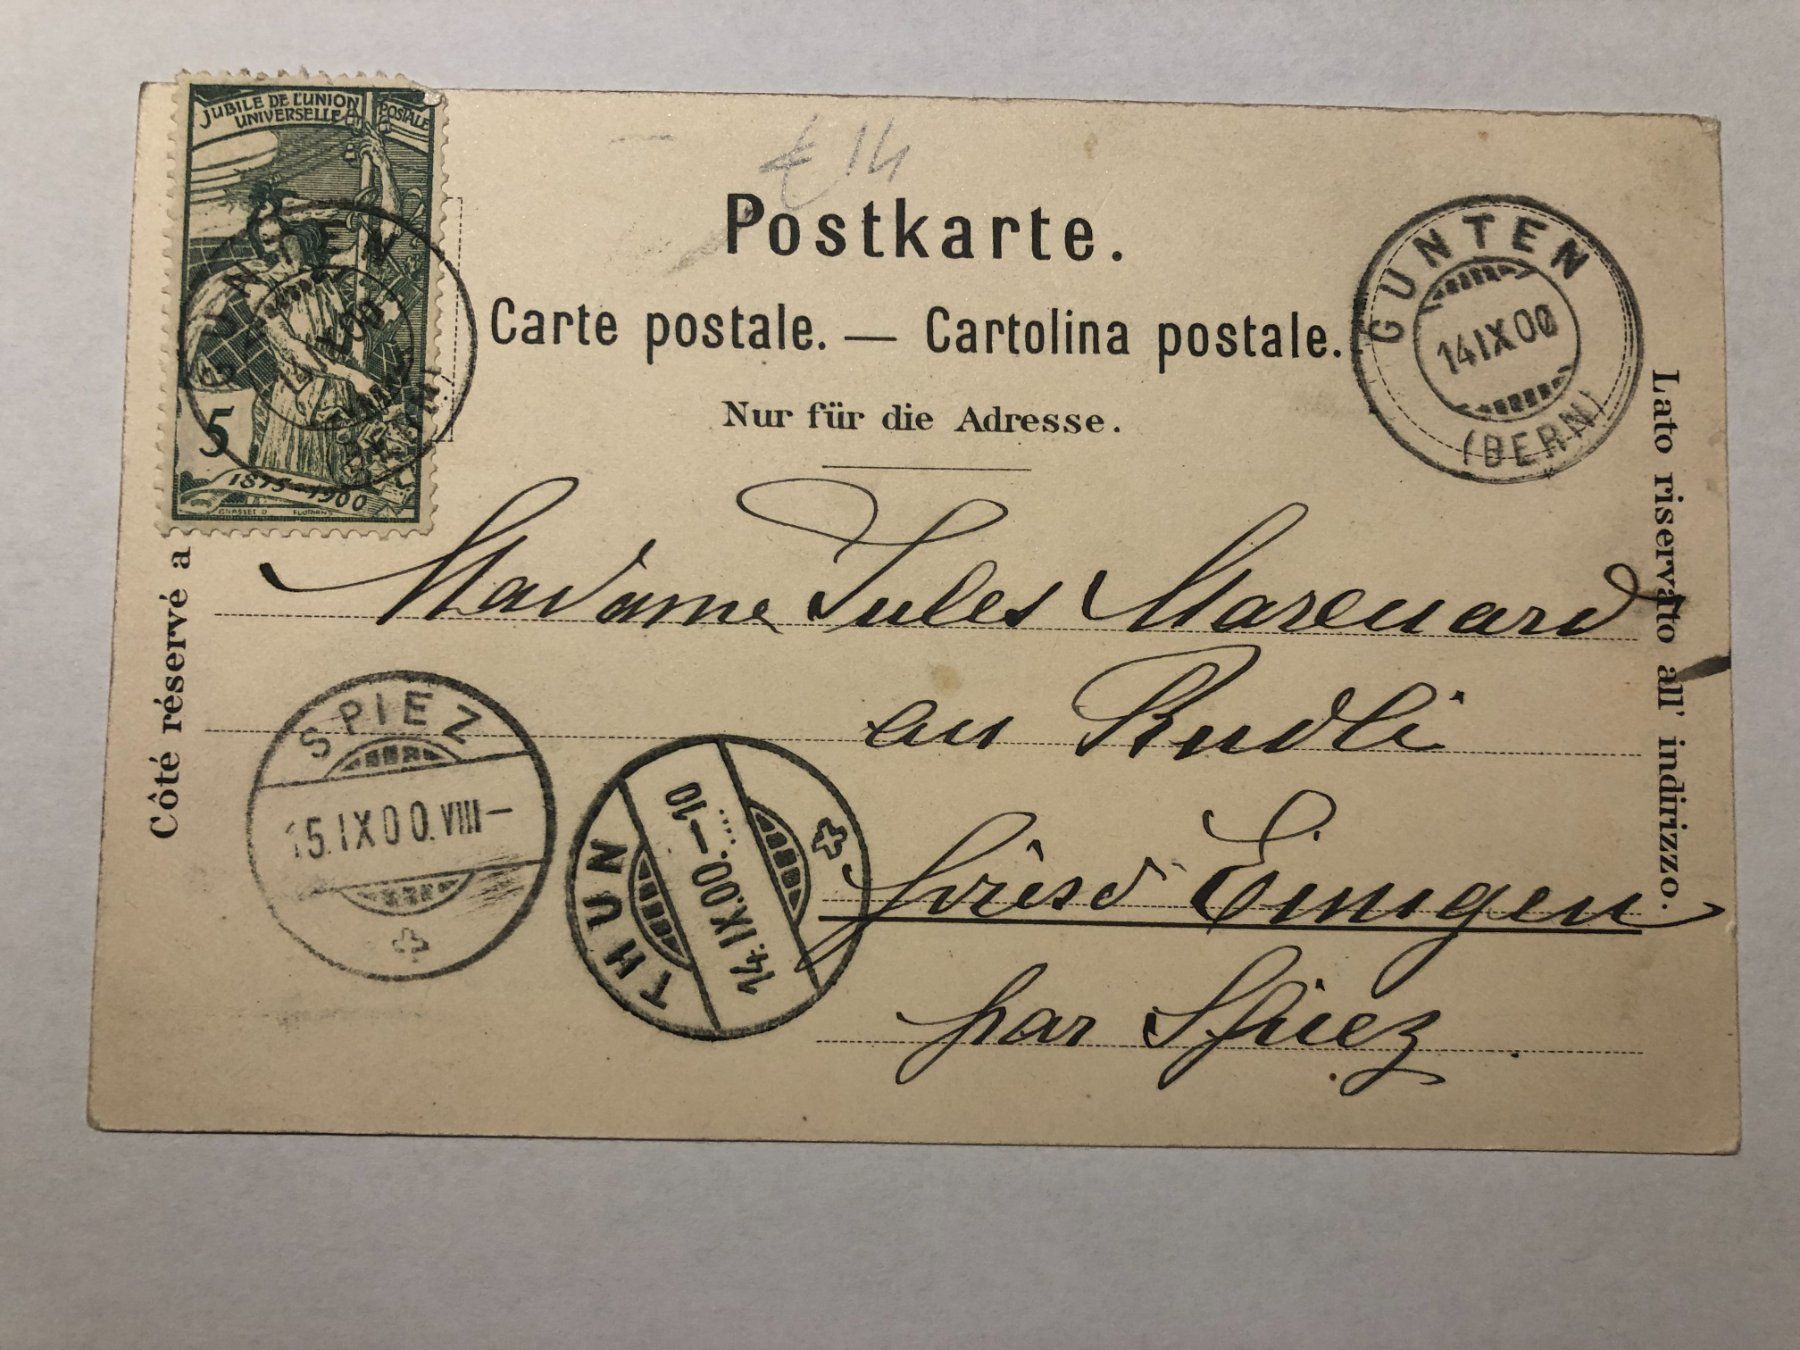 JUBILE DE L'UNION POSTALE
UNIVERSELLE
5
1875-1900
GRASSET D
GUNTEN
14 IX 00
(BERN)
€ 14
Postkarte.
Carte postale. — Cartolina postale.
Nur für die Adresse.
GUNTEN
14 IX 00
(BERN)
Côté réservé a
Lato riservato all' indirizzo.
Madame Jules
au Rudli
Einigen
par Spiez
SPIEZ
15.IX00.VIII–
THUN
14.IX.00–10